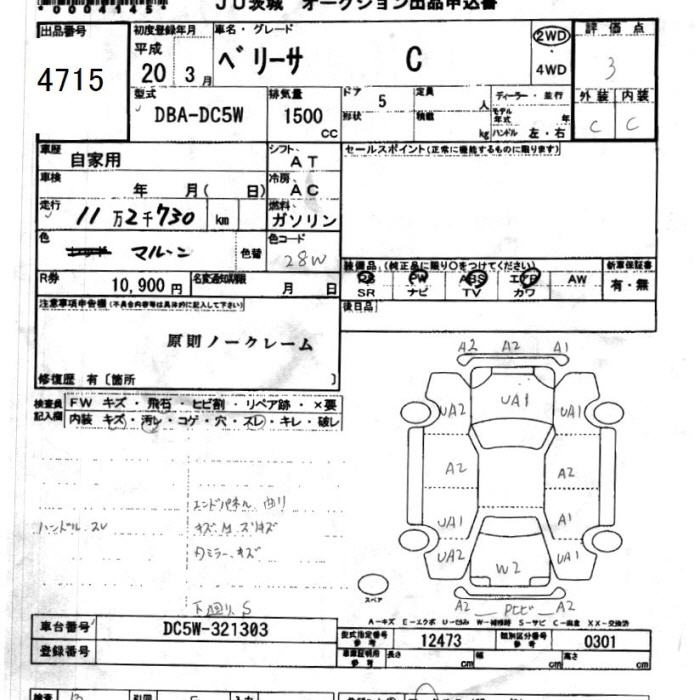 00041451
JU茨城 オークション出品申込書
出品番号
4715
初度登録年月
平成
20 3月
車名・グレード
ベリーサ C
2WD
4WD
評価点
3
型式
DBA-DC5W
排気量
1500
cc
ドア
5
形状
定員
人
積載
kg
ディーラー・並行
モデル年式 年
ハンドル 左・右
外装 内装
C C
車歴
自家用
シフト
AT
セールスポイント(正常に機能するものに限ります)
車検
年 月(日)
冷房
AC
走行
11万2千730 km
燃料
ガソリン
色
マルーン
色替
色コード
28W
R券
10,900円
名変通知期限
月 日
装備品(純正品に限り○をつけてください)
PS PW ABS エアB AW
SR ナビ TV カワ
新車保証書
有・無
後日品
注意事項申告欄(不具合内容等は具体的に記入して下さい)
原則ノークレーム
修復歴 有〔箇所 〕
検査員記入欄
FW キズ・飛石・ヒビ割・リペア跡・×要
内装 キズ・汚レ・コゲ・穴・スレ・キレ・破レ
A2 A2 A1
UA2 UA1 UA1
A2 A2
UA1 A1
UA2 W2 UA1
A2 A2
スペア
エンドパネル 曲リ
ハンドル スレ
下廻り S
A-キズ E-エクボ U-凹み W-補修跡 S-サビ C-腐食 XX-交換済
車台番号
DC5W-321303
登録番号
型式指定番号
参考
12473
類別区分番号
参考
0301
車庫証明用
参考
長さ cm
幅 cm
高さ cm